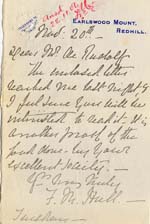 EARLSWOOD MOUNT,
REDHILL.
Nov. 20th
Dear Mr de Rudolf
The enclosed letter
reached me last night &
I feel sure you will be
interested to read it. It is
another proof of the
good done by your
excellent Society.
Yrs very truly
F. M. Hull
Tuesday